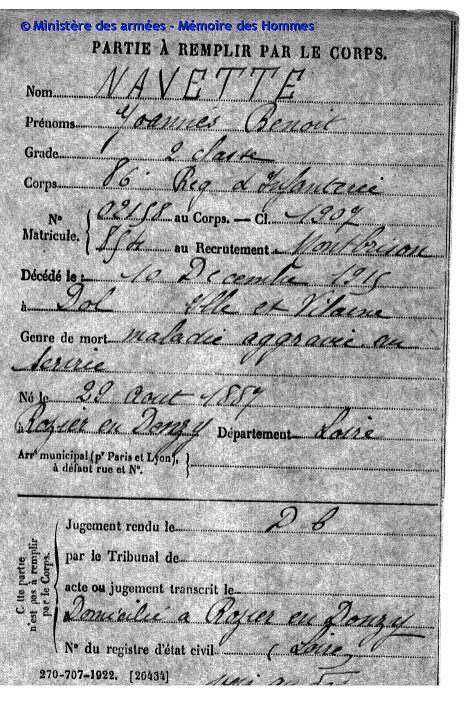 © Ministère des armées - Mémoire des Hommes
PARTIE À REMPLIR PAR LE CORPS.
Nom NAVETTE
Prénoms Yoannès Benoit
Grade 2 classe
Corps 86e Reg d'Infanterie
N° Matricule. 02158 au Corps. — Cl. 1907
854 au Recrutement Montbrison
Décédé le : 10 Decembre 1915
à Dol Ille et Vilaine
Genre de mort maladie aggravée au
service
Né le 29 Aout 1887
à Rozier en Donzy Département Loire
Arrt municipal (pr Paris et Lyon), à défaut rue et N°.
Cette partie n'est pas à remplir par le Corps.
Jugement rendu le D 6
par le Tribunal de
acte ou jugement transcrit le
Domicilié à Rozier en Donzy
N° du registre d'état civil (Loire)
270-707-1922. [26434]